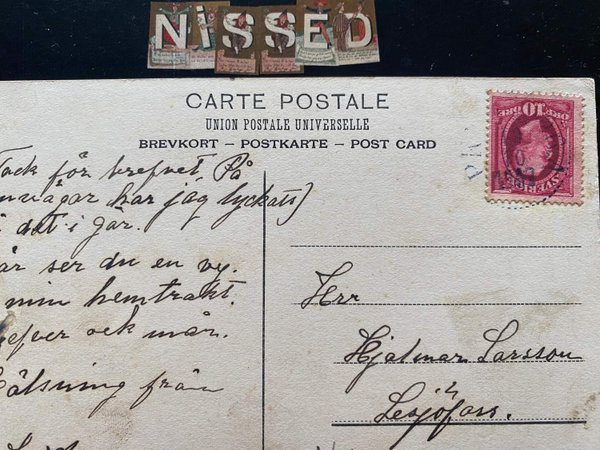 NiSSED
CARTE POSTALE
UNION POSTALE UNIVERSELLE
BREVKORT – POSTKARTE – POST CARD
10
ÖRE
Tack för brefvet. På
har jag lyckats
i går.
ser du en vy.
min hemtrakt.
och mår.
från
Herr
Hjalmar Larsson
Lesjöfors.